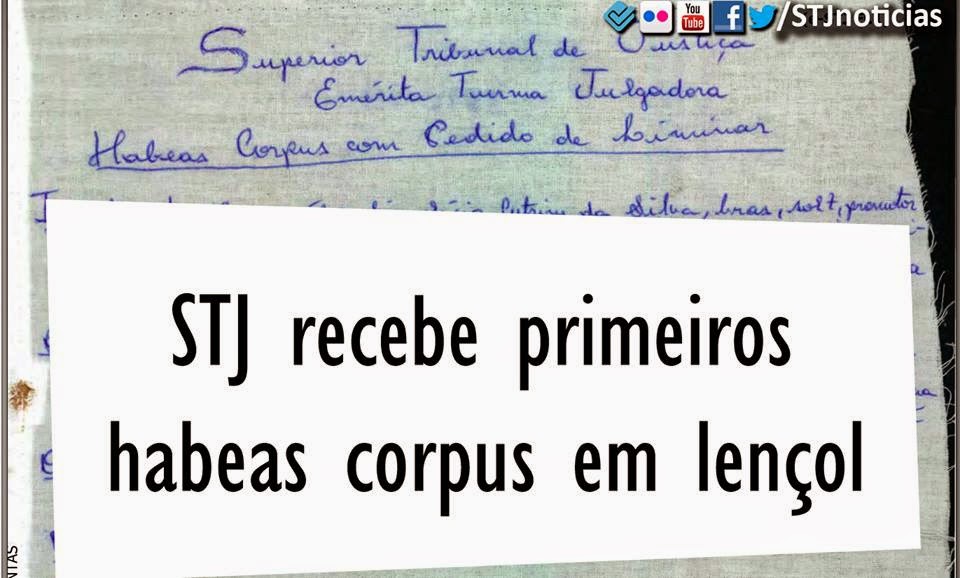 You Tube f /STJnoticias
Superior Tribunal de Justiça
Emérita Turma Julgadora
Habeas Corpus com Pedido de Liminar
da Silva, bras, solt, promotor
STJ recebe primeiros
habeas corpus em lençol
NTAS